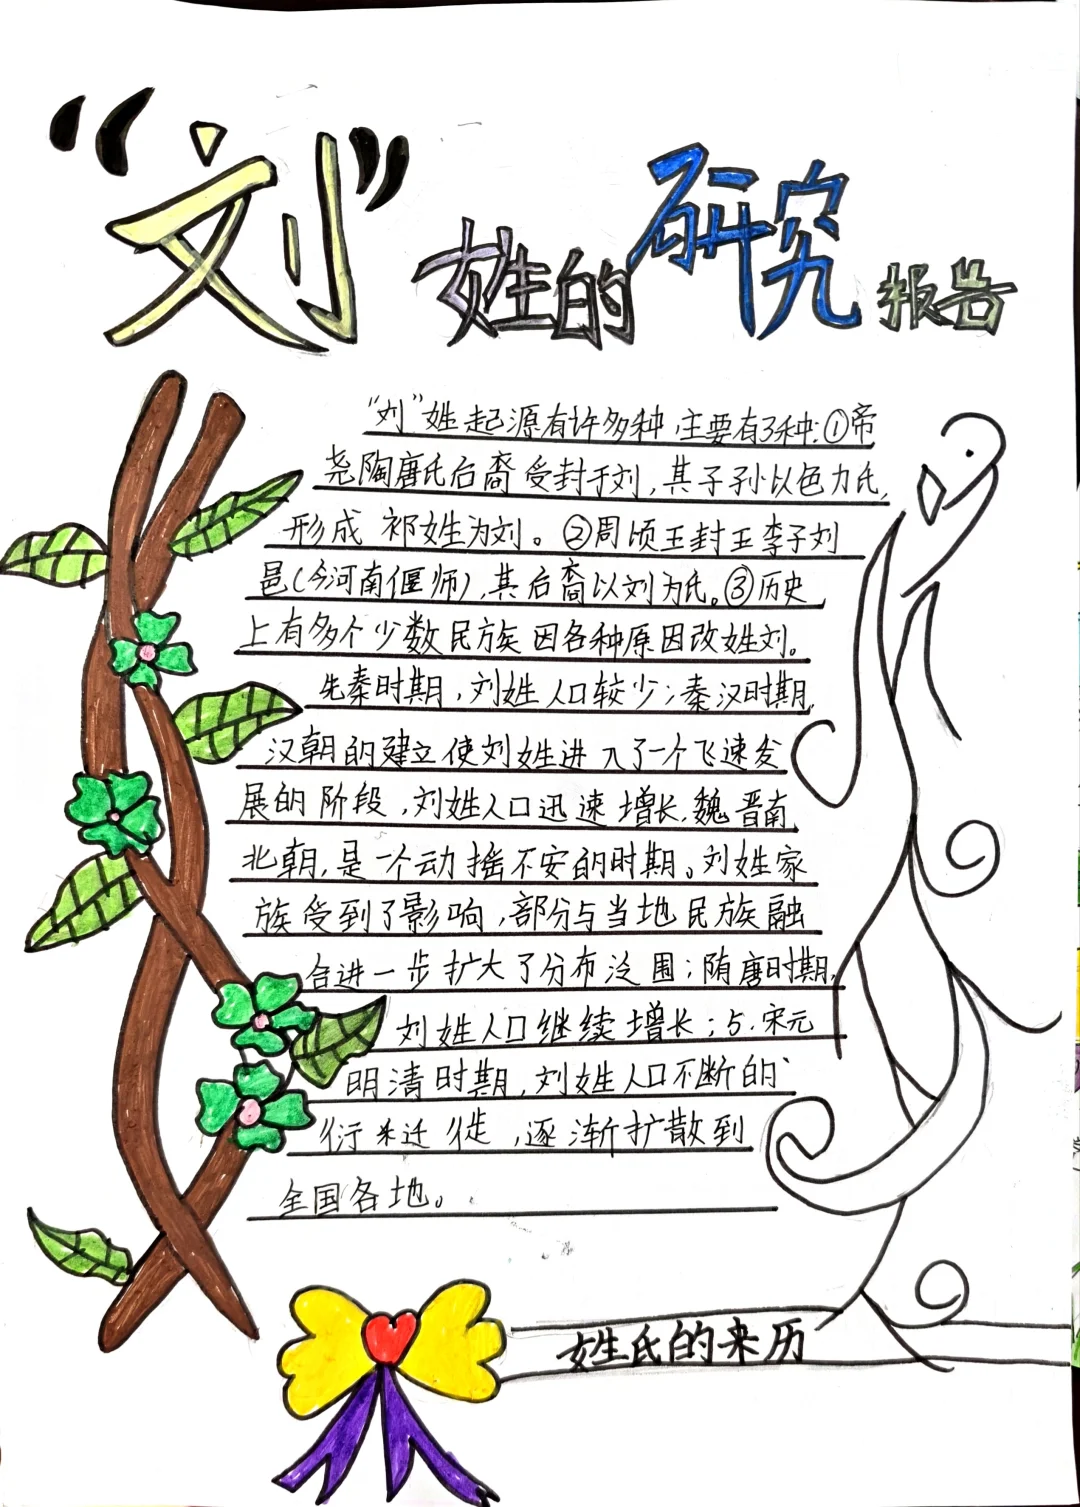 “刘”姓的研究报告
“刘”姓起源有许多种,主要有3种:①帝
尧陶唐氏后裔受封于刘,其子孙以邑为氏,
形成祁姓为刘。②周顷王封王季子刘
邑(今河南偃师),其后裔以刘为氏。③历史
上有多个少数民族因各种原因改姓刘。
先秦时期,刘姓人口较少;秦汉时期,
汉朝的建立使刘姓进入了一个飞速发
展的阶段,刘姓人口迅速增长,魏晋南
北朝,是一个动摇不安的时期。刘姓家
族受到了影响,部分与当地民族融
合进一步扩大了分布泛围;隋唐时期,
刘姓人口继续增长;5.宋元
明清时期,刘姓人口不断的
衍 迁徙,逐渐扩散到
全国各地。
姓氏的来历